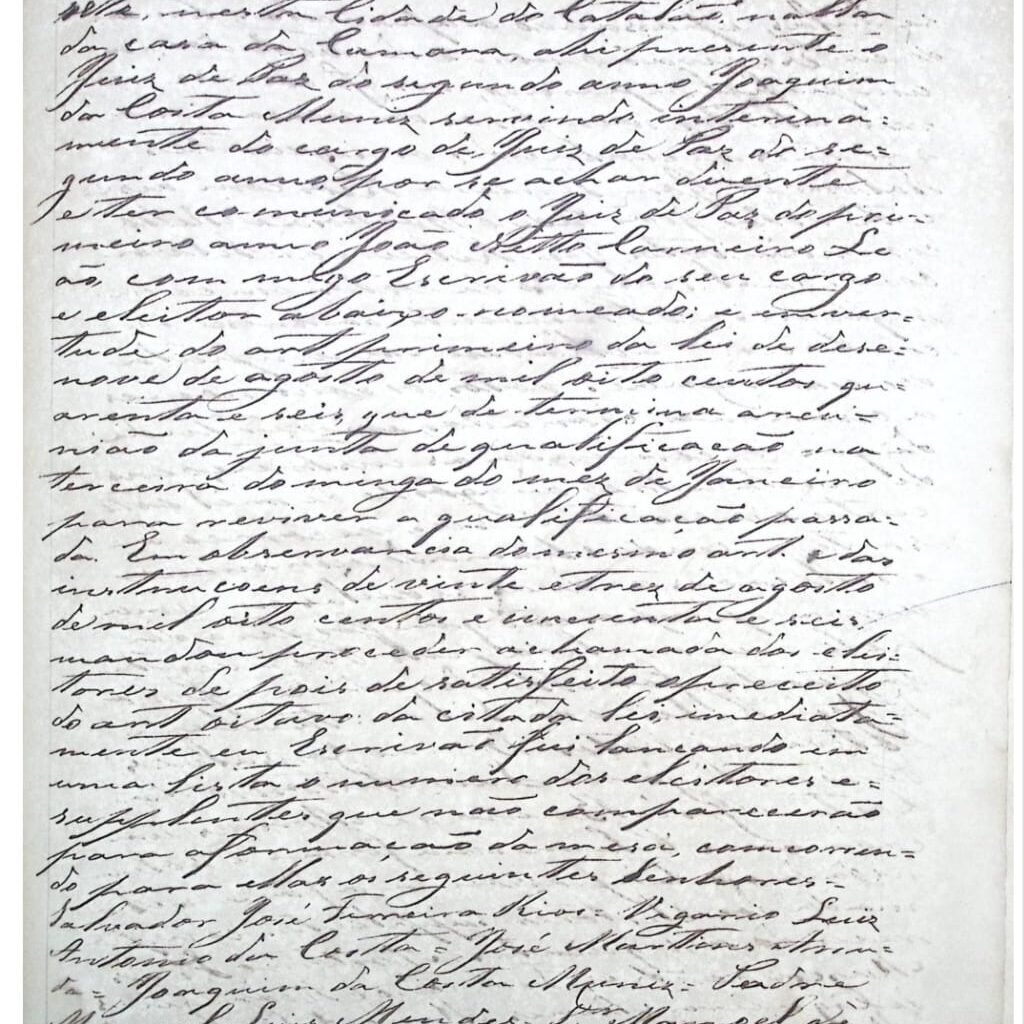 nesta Cidade do Catalão, na Sala
da casa da Camara, ahi presente o
Juiz de Paz do segundo anno Joaquim
da Costa Muniz servindo interina=
mente do cargo de Juiz de Paz do se=
gundo anno, por se achar duente
e ter comunicado o Juiz de Paz do pri=
meiro anno João Netto Carneiro Le
ão, com migo Escrivão do seu cargo
e eleitor abaixo nomeado; e em ver=
tude do art. primeiro da lei de deze=
nove de agosto de mil oito centos qu=
arenta e seis, que de termina a reu=
nião da junta de qualificação na
terceira dominga do mez de Janeiro
para reviver a qualificação passa=
da. Em observancia do mesmo art. e das
instrucoens de vinte e trez de agosto
de mil oito centos e sincoenta e seis,
mandou proceder a chamada dos elei=
tores de pois de satisfeito o preceito
do art oitavo da citada lei, imediata=
mente eu Escrivão fui lancando em
uma lista o numero dos eleitores e=
supplentes que não comparecerão
para a formação da mesa, comcorren=
do para ellas os seguintes Senhores=
Salvador José Ferreira Rios= Vigario Luiz
Antonio da Costa= José Martins
Joaquim da Costa Muniz= Padre
Luiz Mendes= Manoel de